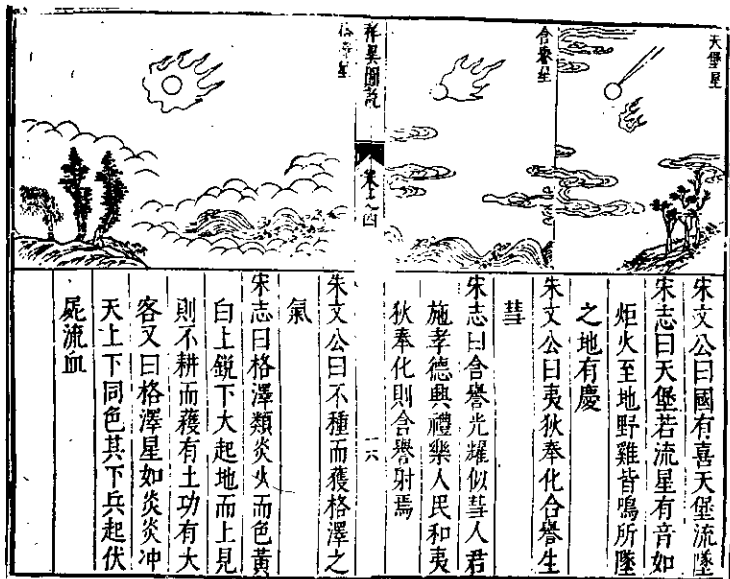 天堡星
宋文公曰國有喜天堡流墜
宋志曰天堡若流星有音如
炬火至地野雞皆鳴所墜
之地有慶
含譽星
朱文公曰夷狄奉化含譽生
彗
宋志曰含譽光耀似彗人君
施孝德興禮樂人民和夷
狄奉化則含譽射焉
祥異圖説
十六
朱文公曰不種而穫格澤之
氣
宋志曰格澤類炎火而色黃
白上銳下大起地而上見
則不耕而穫有土功有大
客又曰格澤星如炎炎冲
天上下同色其下兵起伏
屍流血